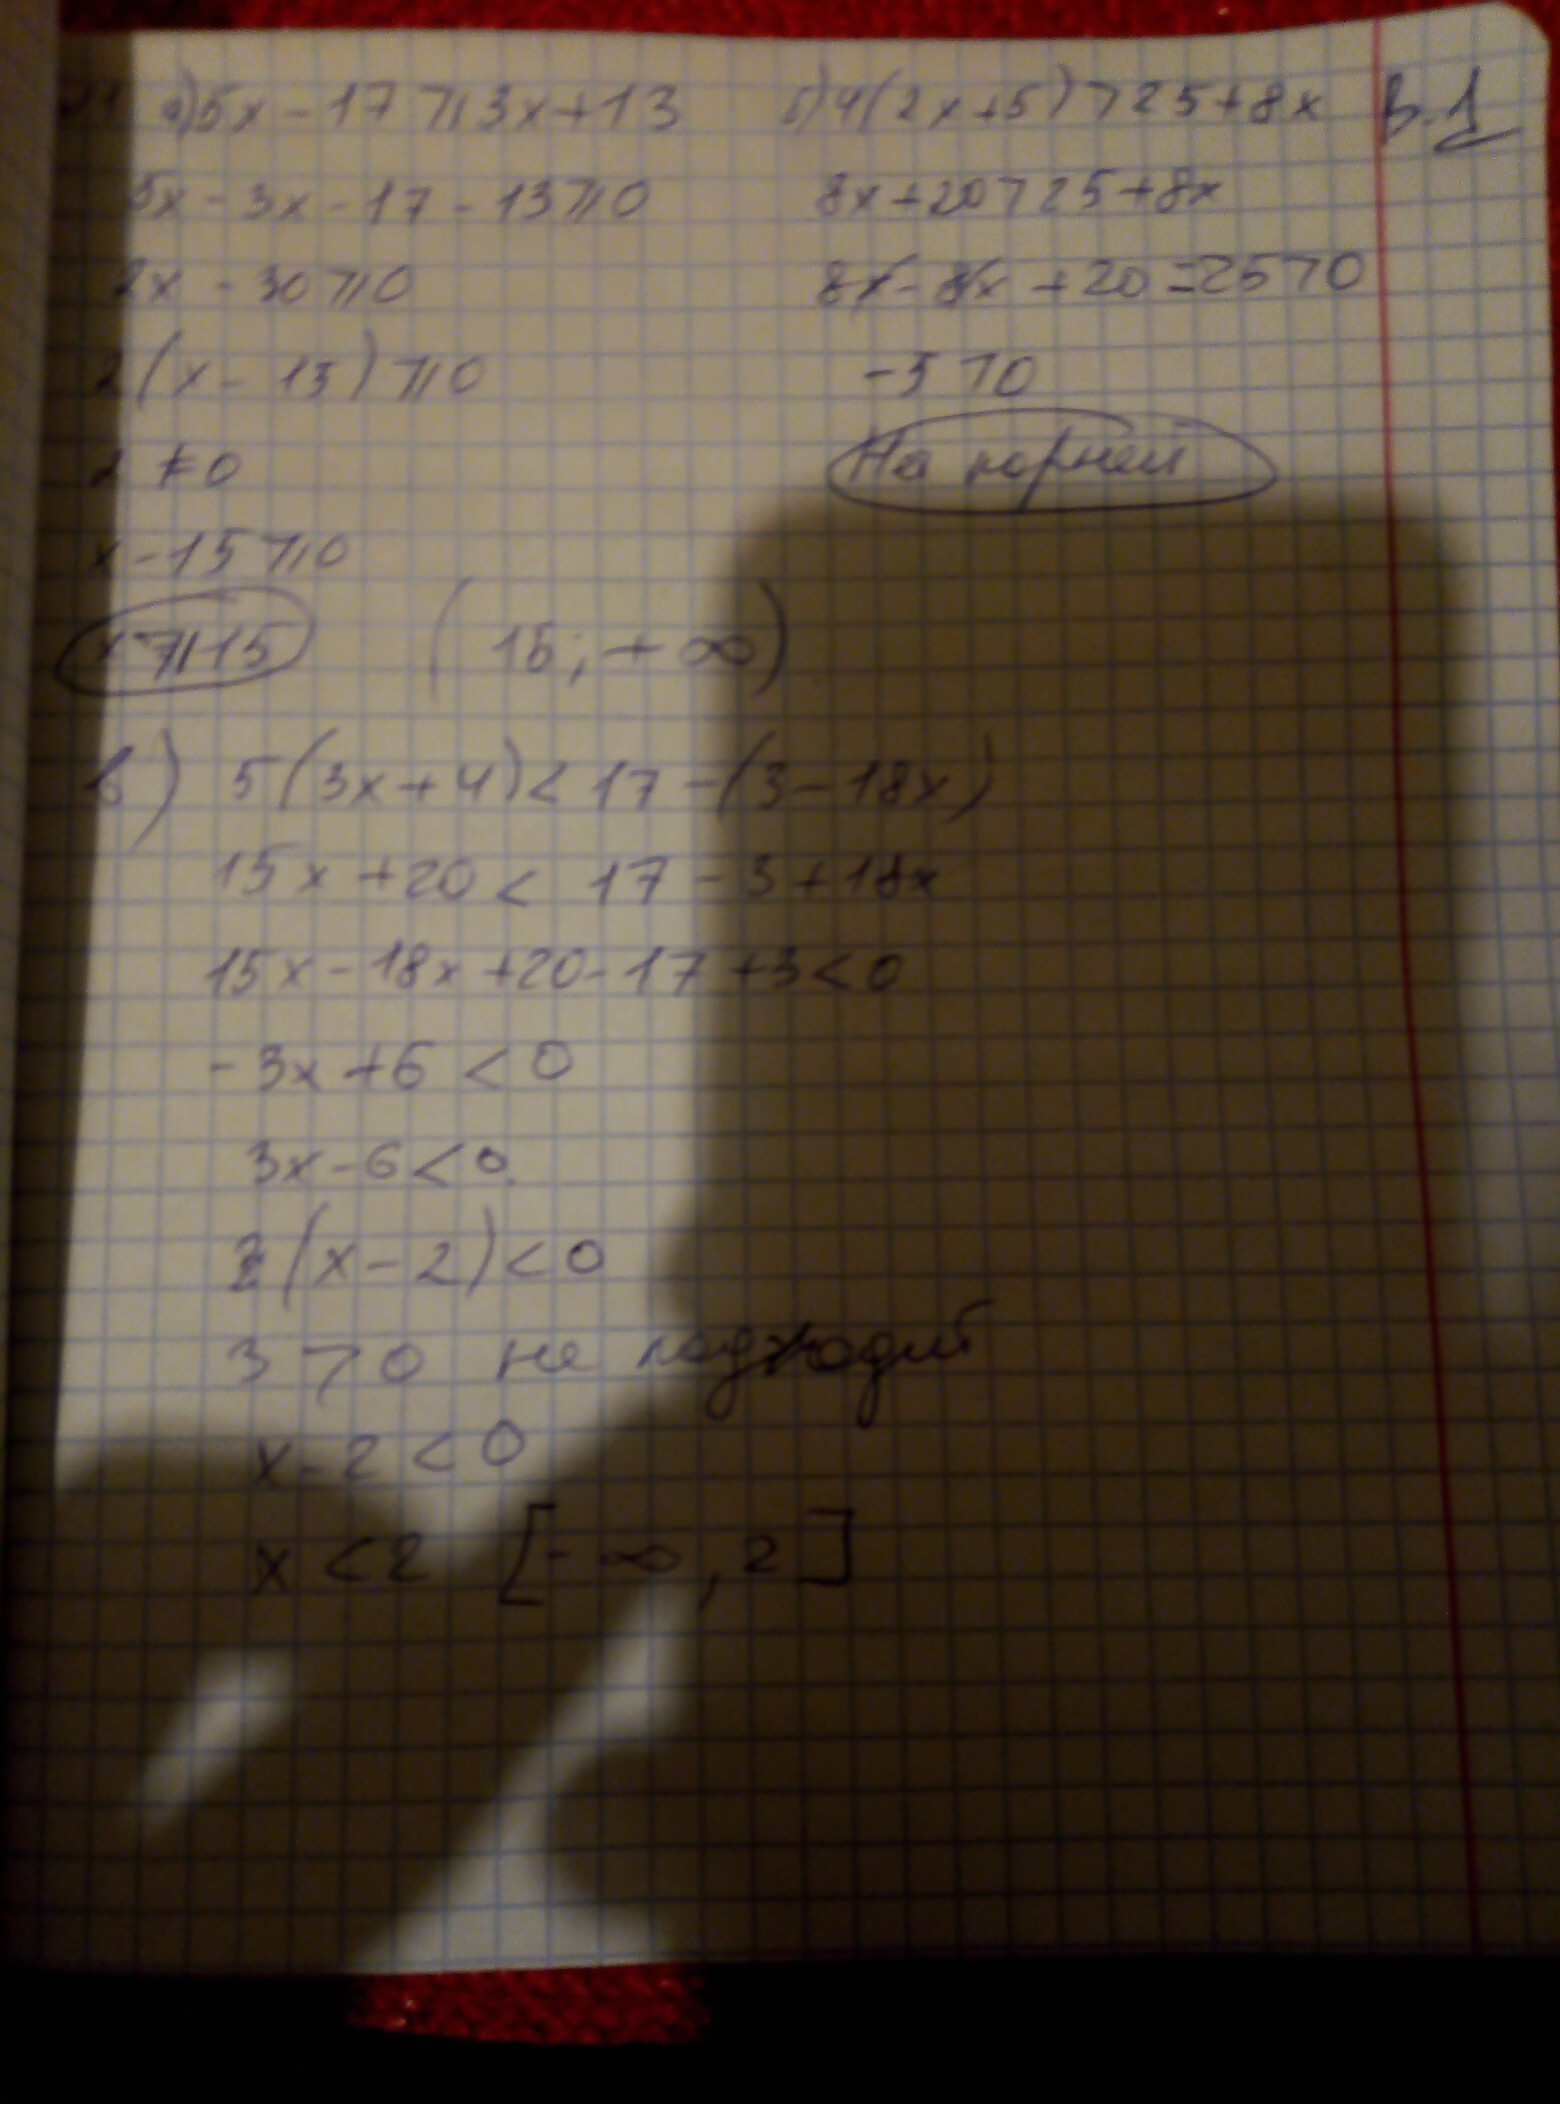 а) 5x - 17 ⩾ 3x + 13
5x - 3x - 17 - 13 ⩾ 0
2x - 30 ⩾ 0
2(x - 15) ⩾ 0
2 ≠ 0
x - 15 ⩾ 0
x ⩾ 15 (15; + ∞)
б) 4(2x + 5) > 25 + 8x В. 1
8x + 20 > 25 + 8x
8x - 8x + 20 - 25 > 0
-5 > 0
На корней
в) 5(3x + 4) < 17 - (3 - 18x)
15x + 20 < 17 - 3 + 18x
15x - 18x + 20 - 17 + 3 < 0
- 3x + 6 < 0
3x - 6 < 0
3(x - 2) < 0
3 > 0 не подходит
x - 2 < 0
x < 2 [- ∞, 2]